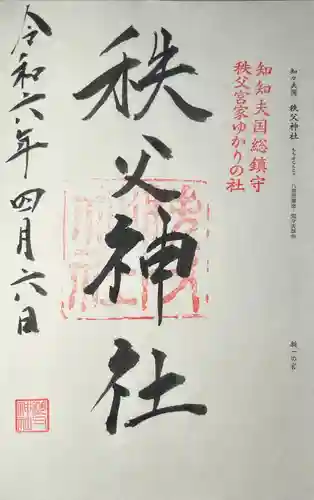 知々夫国 秩父神社
知知夫国総鎮守
秩父宮家ゆかりの社
秩父神社
令和六年四月六日